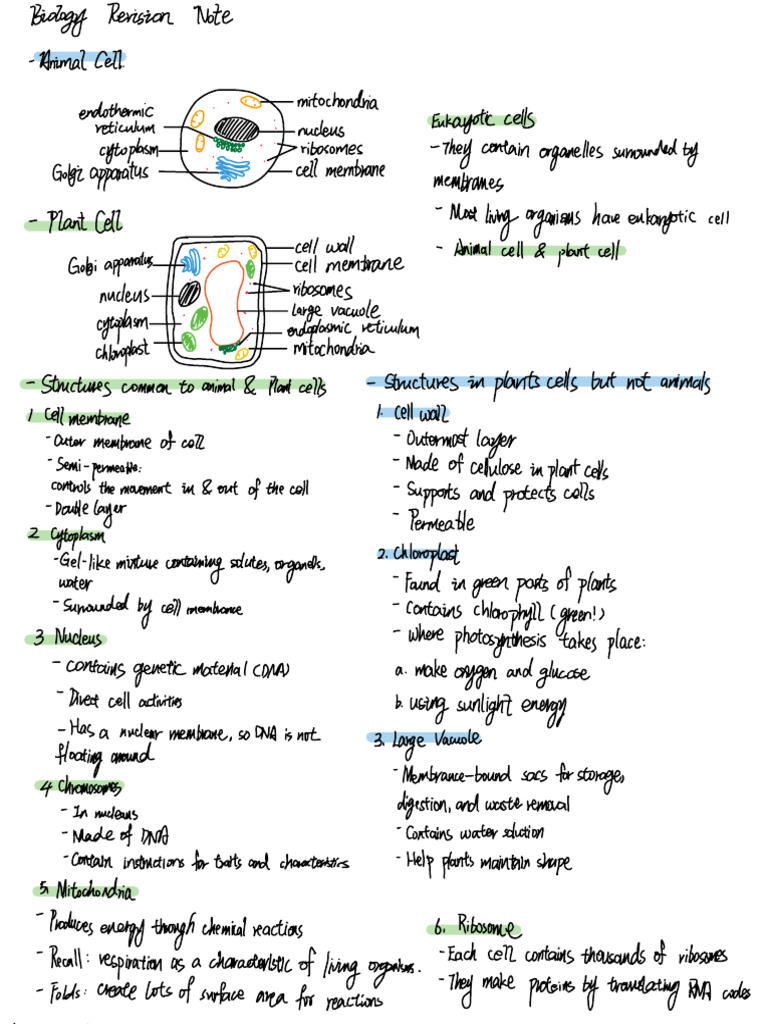 Biology Revision Note
- Animal Cell
endothermic
reticulum
cytoplasm
Golgi apparatus
mitochondria
nucleus
ribosomes
cell membrane
Eukaryotic cells
- They contain organelles surrounded by
membranes
- Most living organisms have eukaryotic cell
- Animal cell & plant cell
- Plant Cell
Golgi apparatus
nucleus
cytoplasm
chloroplast
cell wall
cell membrane
ribosomes
large vacuole
endoplasmic reticulum
mitochondria
- Structures common to animal & Plant cells
1 Cell membrane
- Outer membrane of cell
- Semi-permeable:
controls the movement in & out of the cell
- Double layer
2 Cytoplasm
- Gel-like mixture containing solutes, organels,
water
- Surrounded by cell membrance
3 Nucleus
- contains genetic material (DNA)
- Divect cell activities
- Has a nuclear membrane, so DNA is not
floating around
4 Chromosomes
- In nucleus
- Made of DNA
- Contain instructions for traits and characteristics
5. Mitochondria
- Produces energy though chemical reactions
- Recall: respiration as a characteristic of living organism.
- Folds: create lots of surface area for reactions
- Structures in plants cells but not animals
1. Cell wall
- Outermost layer
- Made of cellulose in plant cells
- Supports and protects cells
- Permeable
2. Chloroplast
- Found in green parts of plants
- Contains chlorophyll (green!)
- where photosynthesis takes place:
a. make oxygen and glucose
b. using sunlight energy
3. Large Vacuole
- Membrance-bound sacs for storage,
digestion, and waste removal
- Contains water solution
- Help plants maintain shape
6. Ribosome
- Each cell contains thousands of ribosomes
- They make proteins by translating RNA codes